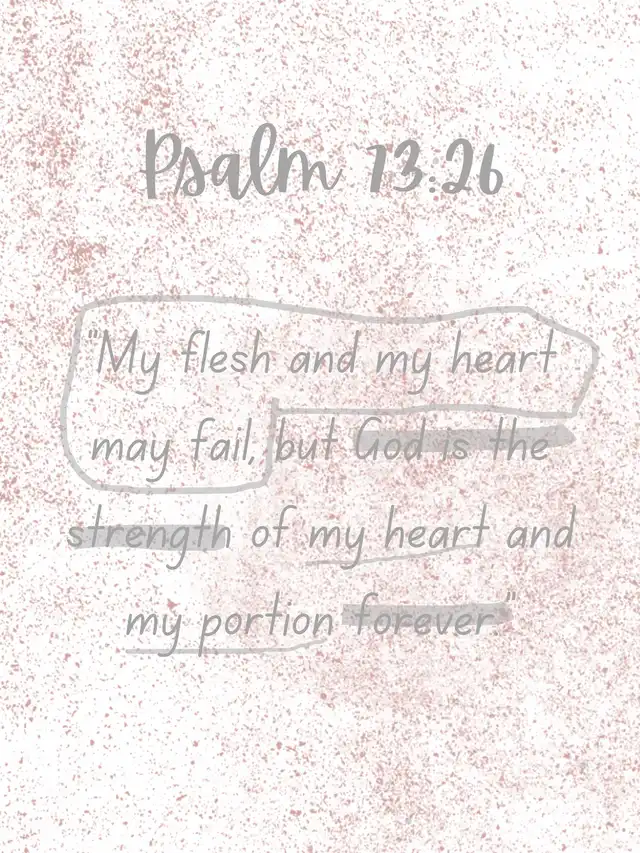 Psalm 73:26
"My flesh and my heart
may fail, but God is the
strength of my heart and
my portion forever"